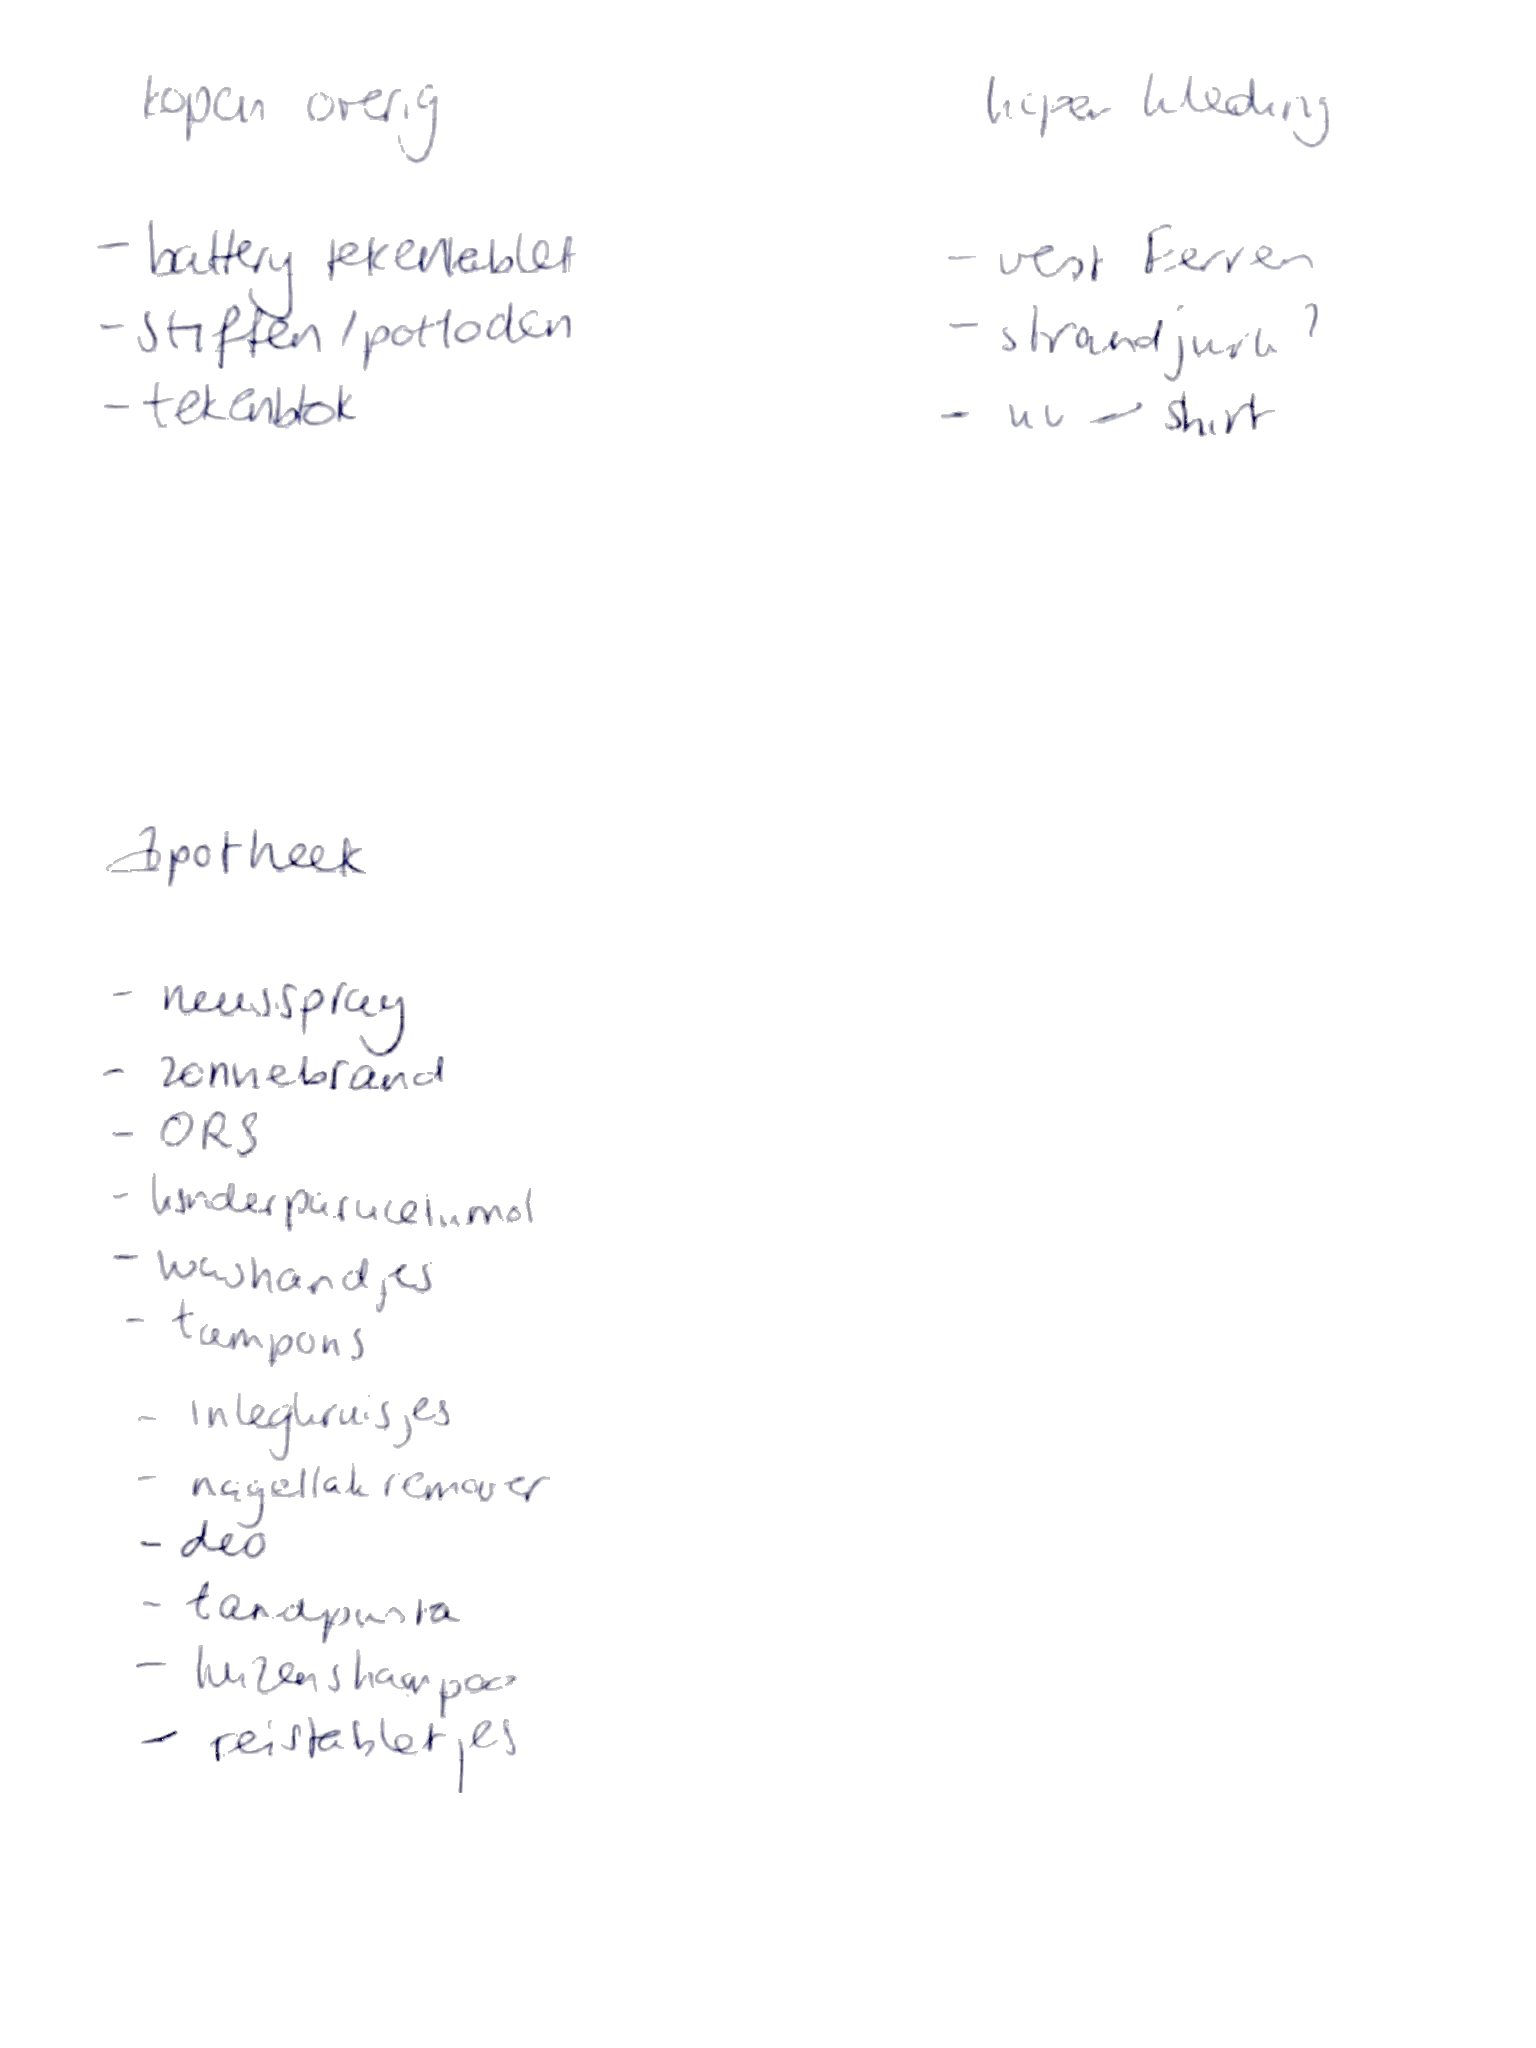 kopen overig
- battery tekentablet
- stiften / potloden
- tekenblok
kopen kleding
- vest Ferren
- strandjurk?
- uv - shirt
Apotheek
- neusspray
- zonnebrand
- ORS
- kinderparacetamol
- washandjes
- tampons
- inlegkruisjes
- nagellakremover
- deo
- tandpasta
- luizenshampoo
- reistabletjes